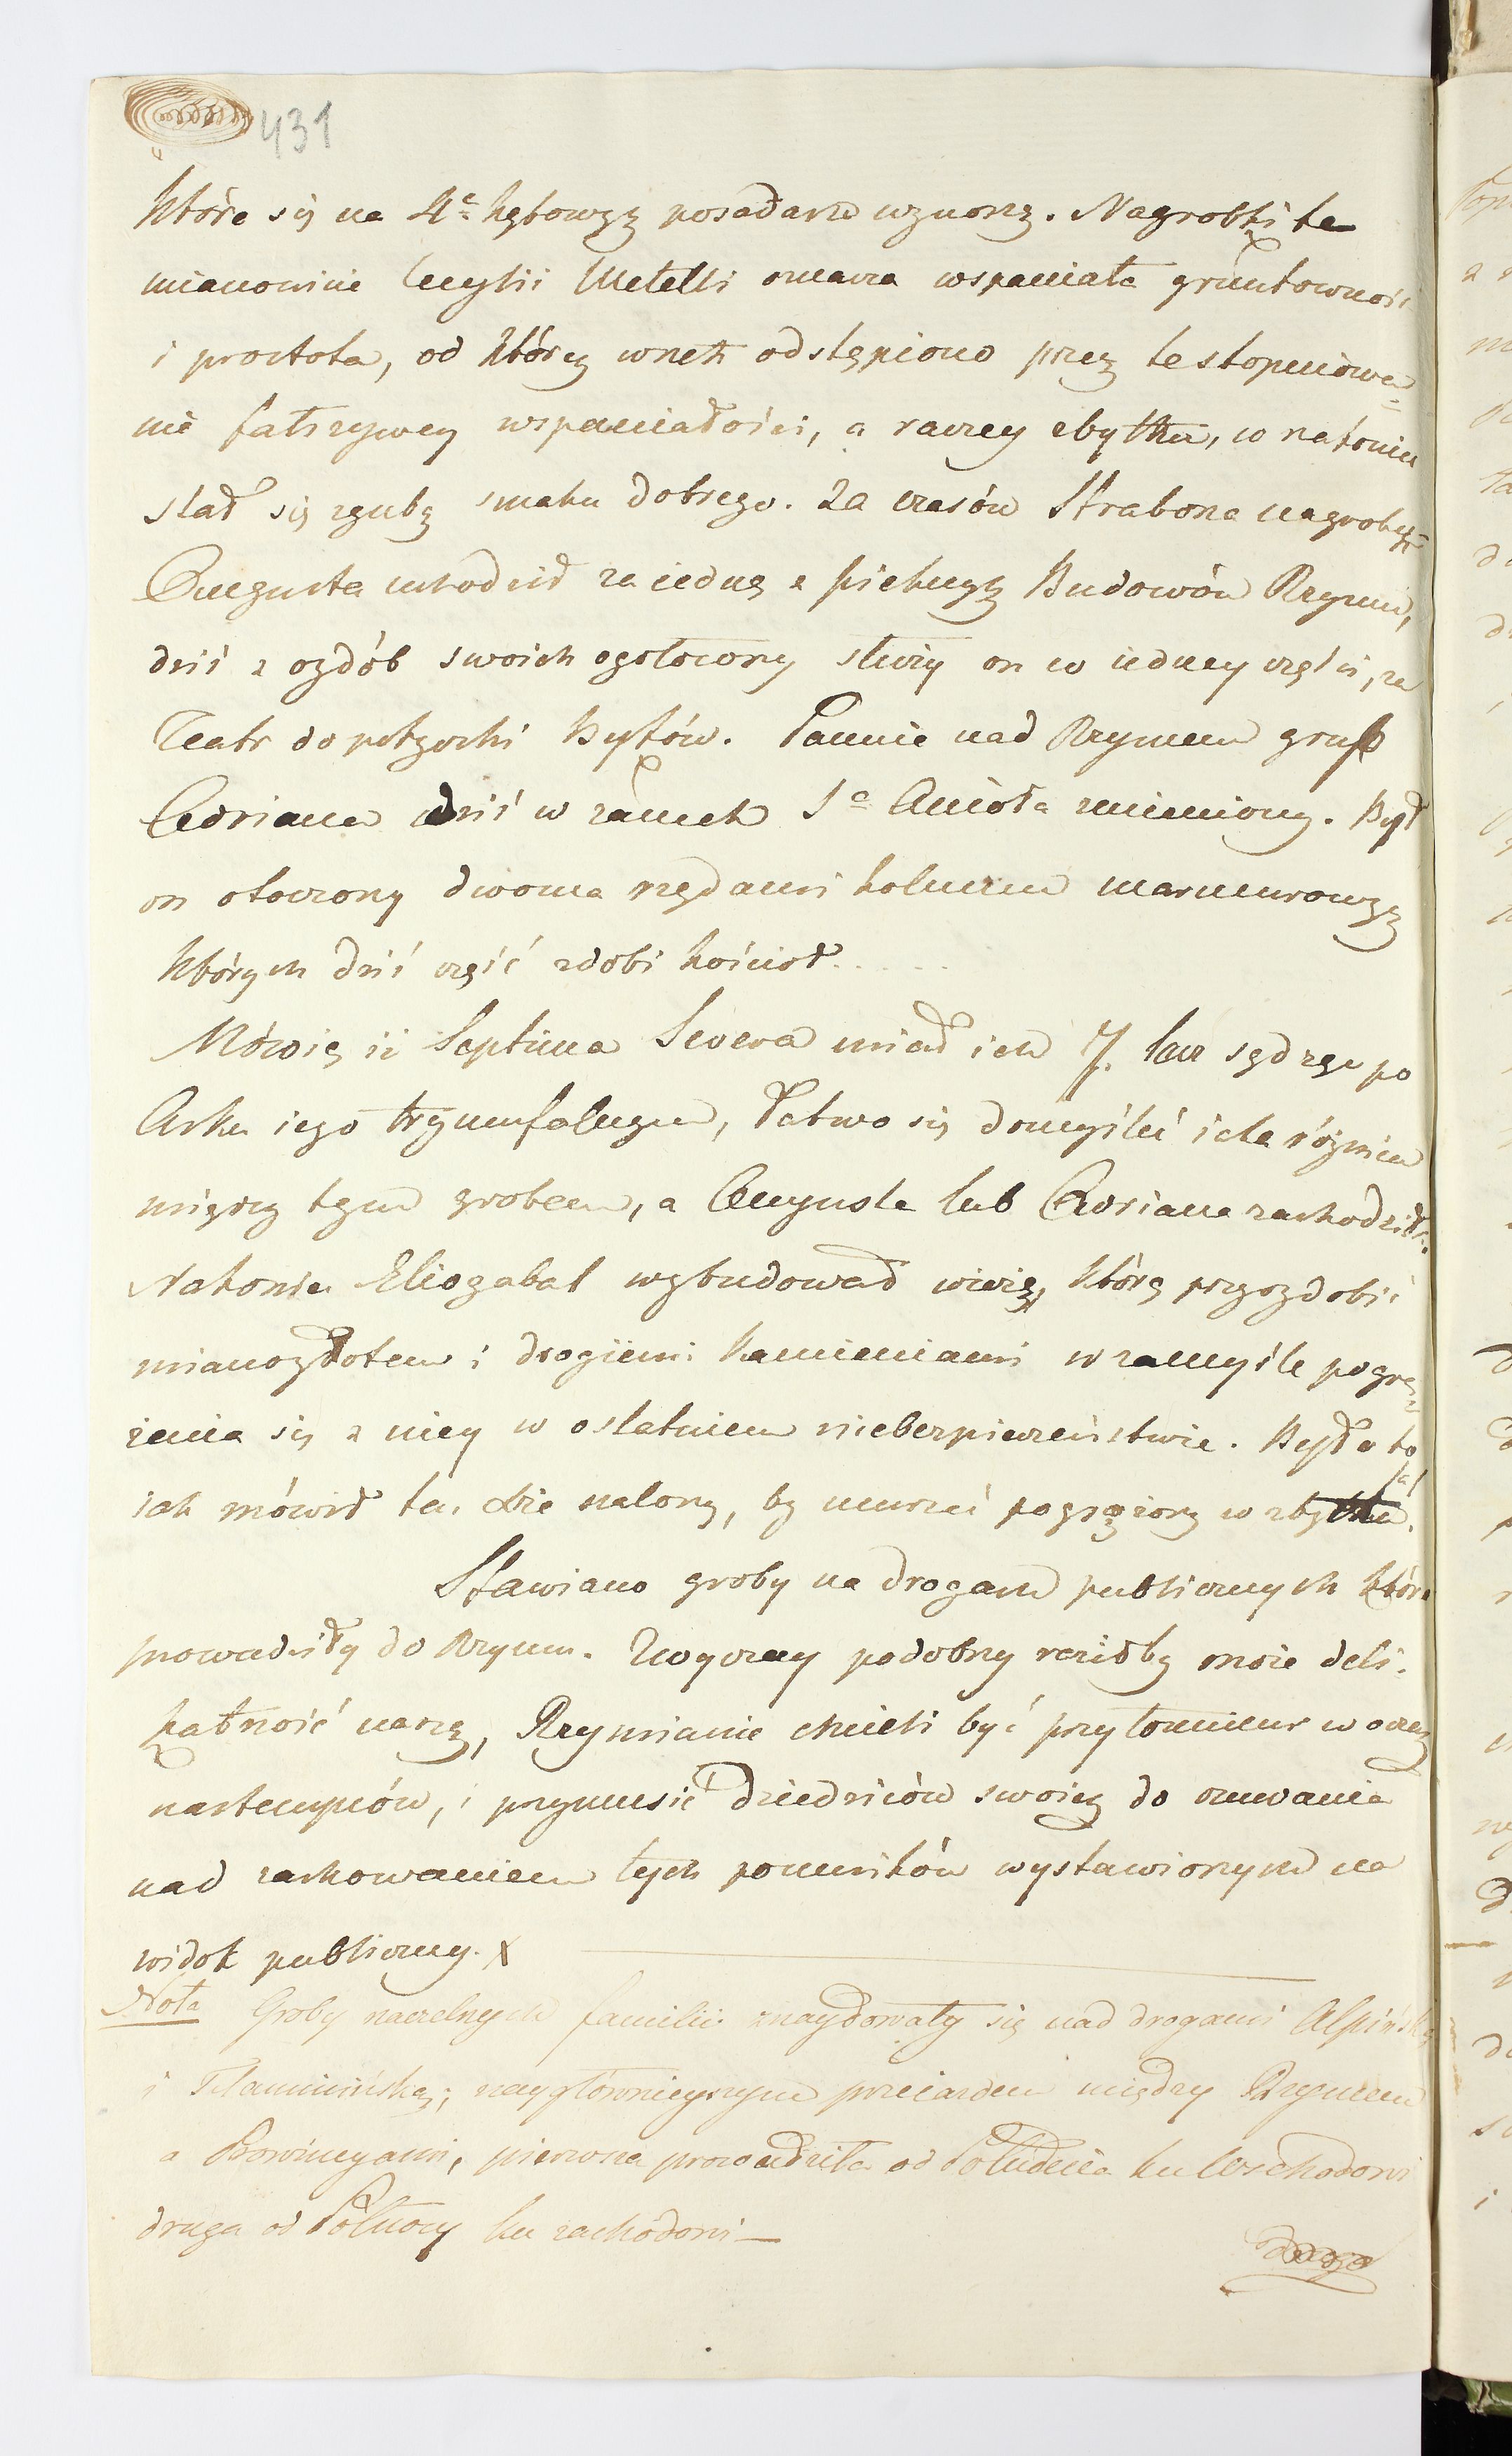 431
które się na 4e kątowyꝫ posadaꝫ wznoszą. Nagrobki te
mianowicie Cecylii Metelli oznacza wspaniała gruntowność
i prostota, od którey wnet odstępiono przez te stopniowa=
nie fałszywey wspaniałości, a raczey zbytku, co nakoniec
stał się zgubą smaku dobrego. Za czasów Strabona nagrobek
Augusta uchodził za iedną z pięknyꝫ Budowów Rzymu,
dziś z ozdób swoich ogołocony służy on w iedney części, za
Teatr do potyczki Byków. Panuie nad Rzymem grób
Adriana dziś w zamek S.o Anioła zmieniony. Był
on otoczony dwoma rzędami kolumn marmurowyꝫ
których dziś część zdobi kościoł . . . . .
Mówią iż Septima Severa miał ich 7. lecz sądząc po
Arku iego tryumfalnym, łatwo się domyślić iaka różnica
między tym grobem, a Augusta lub Adriana zachodziła.
Nakoniec Eliogabal wybudował wieżę, którą przyozdobić
miano złotem i drogiemi kamieniami w zamyśle pogrą=
żenia się z niey w ostatniem niebezpieczeństwie. Była to
iak mówił ten
szalony, by umrzeć pogrążony w zbytkach.
Stawiano groby na drogach publicznych które
prowadziły do Rzymu. Zwyczay podobny raziłby może deli=
katność naszą, Rzymianie chcieli być przytomnemi w oczaꝫ
nastempców, i przymusić dziedziców swoiꝫ do czuwania
nad zachowaniem tych pomników wystawionych na
widok publiczny. x
Nota Groby naczelnych familii znaydowały się nad drogami Alpińską
i Flamińską; naygłównieyszym przeiazdem między Rzymem
a Prowincyami, pierwsza prowadziła od Południa ku Wschodowi
druga od Północy ku zachodowi —